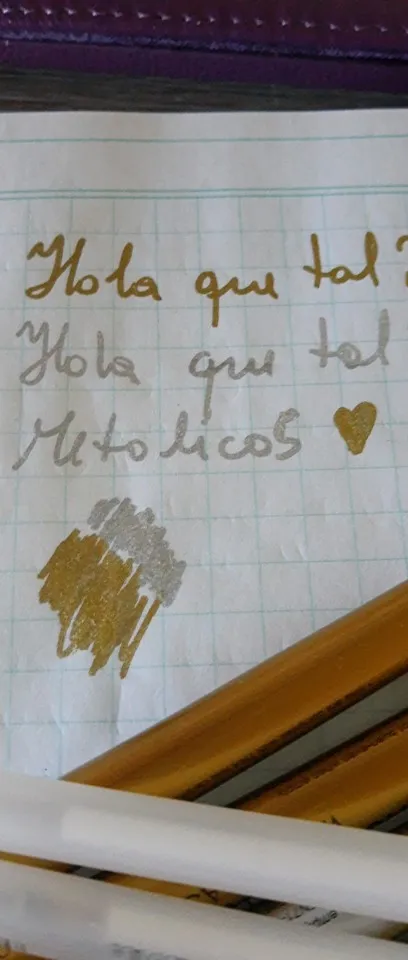 Hola que tal?
Hola que tal
Metalicos